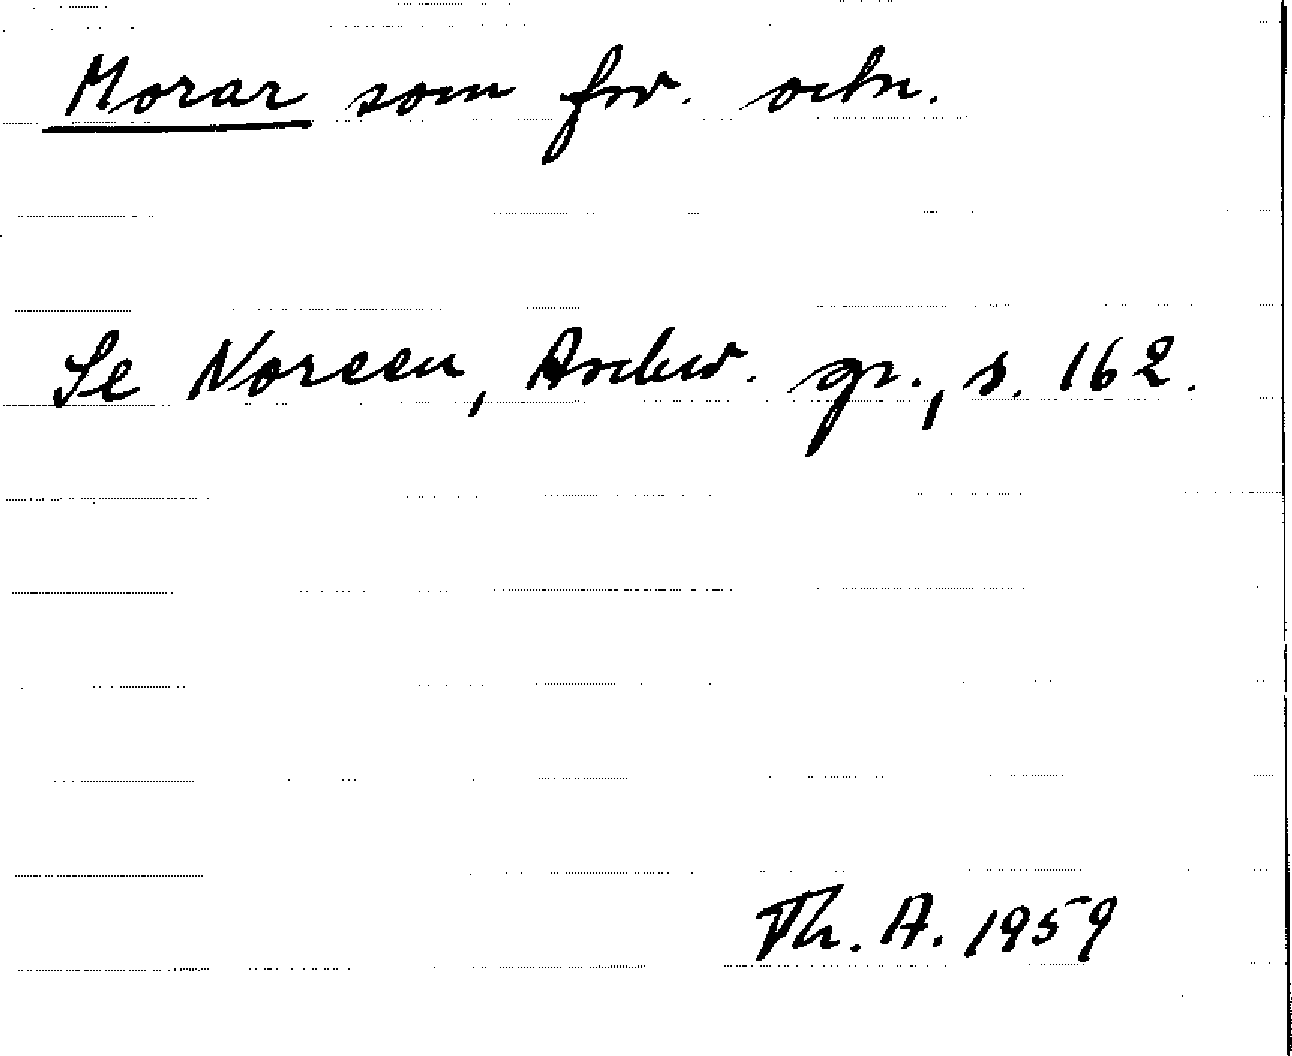 Morar som fsv. ortn.
Se Noreen, Aschw. gr., s. 162.
Th. A. 1959